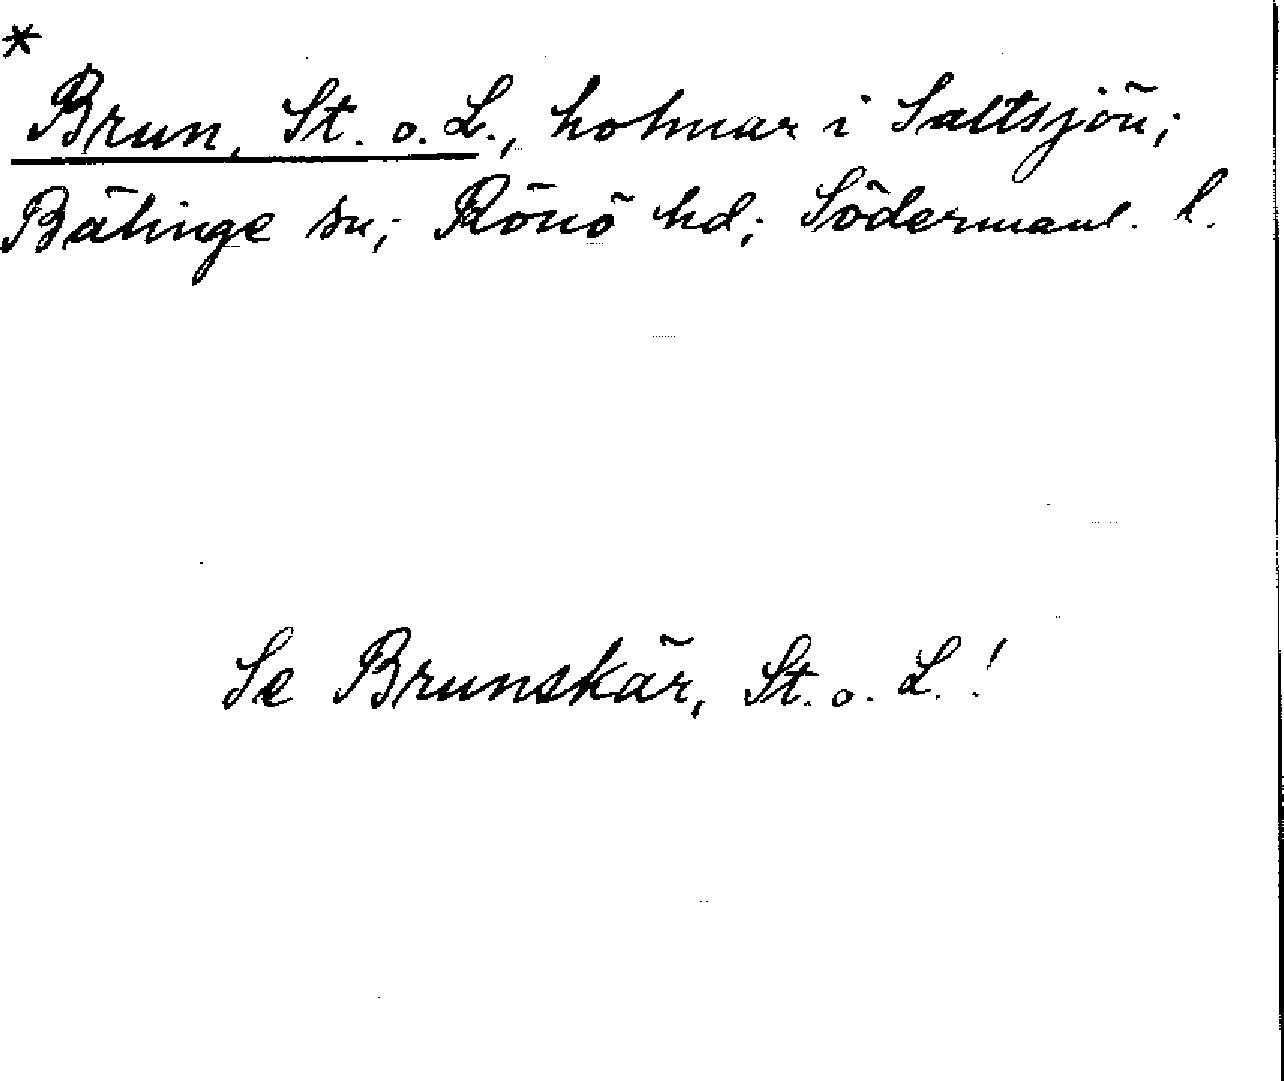 *
Brun, St. o. L., holmar i Saltsjön;
Bälinge sn; Rönö hd; Södermanl. l.
Se Brunskär, St. o. L.!